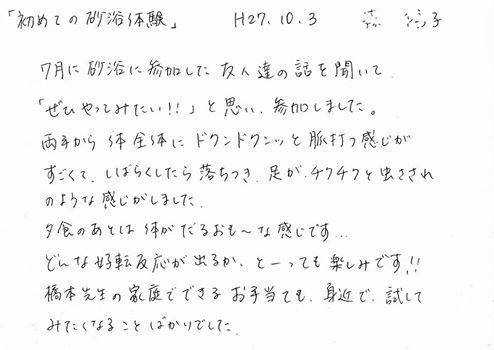 「初めての砂浴体験」 H27.10.3 子
7月に砂浴に参加した友人達の話を聞いて、
「ぜひやってみたい!!」と思い、参加しました。
両手から体全体にドクンドクンッと脈打つ感じが
すごくて、しばらくしたら落ちつき、足がチクチクと虫さされ
のような感じがしました。
夕食のあとは体がだるおも〜な感じです…
どんな好転反応が出るか、とーっても楽しみです!!
橋本先生の家庭でできるお手当ても、身近で、試して
みたくなることばかりでした。